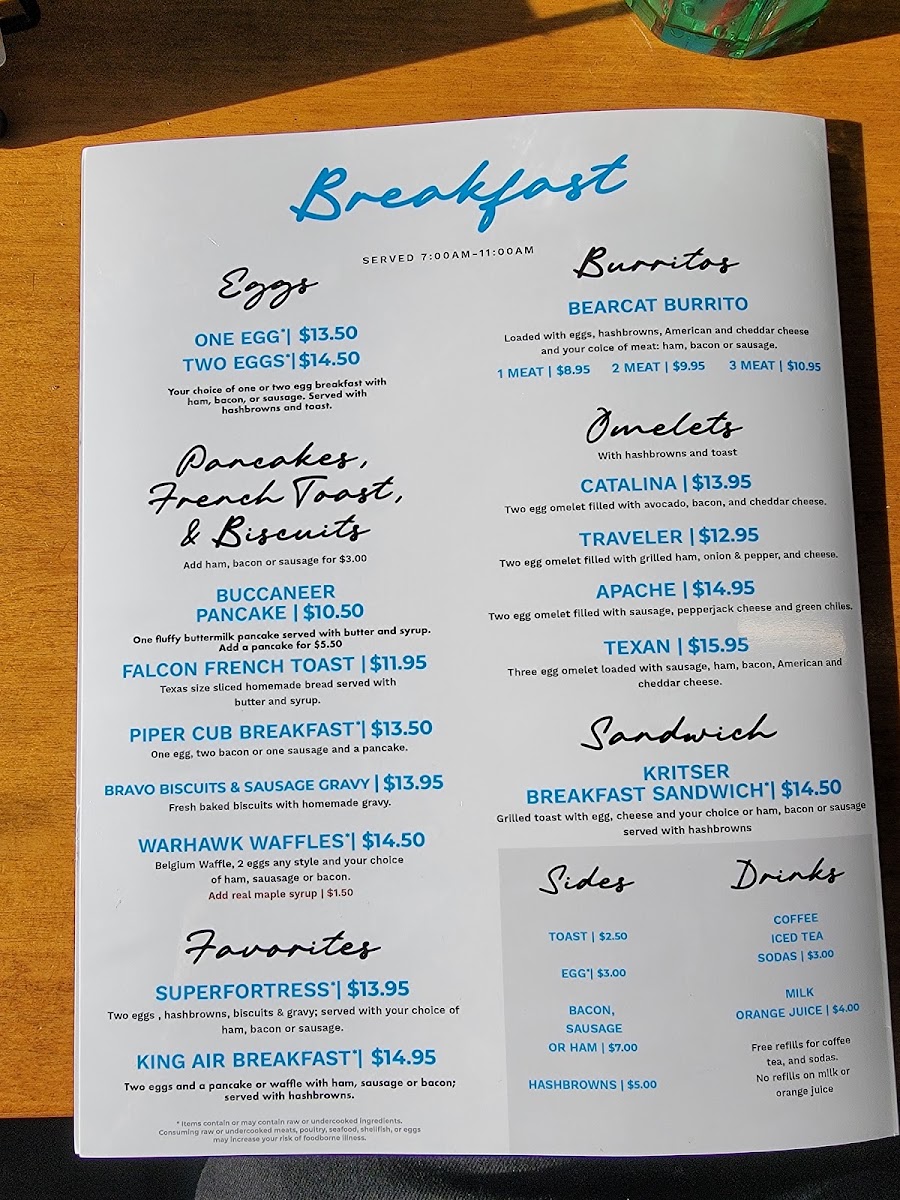 Breakfast
SERVED 7:00AM-11:00AM
Eggs
ONE EGG*| $13.50
TWO EGGS*|$14.50
Your choice of one or two egg breakfast with
ham, bacon, or sausage. Served with
hashbrowns and toast.
Pancakes,
French Toast,
& Biscuits
Add ham, bacon or sausage for $3.00
BUCCANEER
PANCAKE | $10.50
One fluffy buttermilk pancake served with butter and syrup.
Add a pancake for $5.50
FALCON FRENCH TOAST | $11.95
Texas size sliced homemade bread served with
butter and syrup.
PIPER CUB BREAKFAST*| $13.50
One egg, two bacon or one sausage and a pancake.
BRAVO BISCUITS & SAUSAGE GRAVY | $13.95
Fresh baked biscuits with homemade gravy.
WARHAWK WAFFLES*| $14.50
Belgium Waffle, 2 eggs any style and your choice
of ham, sauasage or bacon.
Add real maple syrup | $1.50
Favorites
SUPERFORTRESS*| $13.95
Two eggs , hashbrowns, biscuits & gravy; served with your choice of
ham, bacon or sausage.
KING AIR BREAKFAST*| $14.95
Two eggs and a pancake or waffle with ham, sausage or bacon;
served with hashbrowns.
* Items contain or may contain raw or undercooked ingredients.
Consuming raw or undercooked meats, poultry, seafood, shellfish, or eggs
may increase your risk of foodborne illness.
Burritos
BEARCAT BURRITO
Loaded with eggs, hashbrowns, American and cheddar cheese
and your coice of meat: ham, bacon or sausage.
1 MEAT | $8.95 2 MEAT | $9.95 3 MEAT | $10.95
Omelets
With hashbrowns and toast
CATALINA | $13.95
Two egg omelet filled with avocado, bacon, and cheddar cheese.
TRAVELER | $12.95
Two egg omelet filled with grilled ham, onion & pepper, and cheese.
APACHE | $14.95
Two egg omelet filled with sausage, pepperjack cheese and green chiles.
TEXAN | $15.95
Three egg omelet loaded with sausage, ham, bacon, American and
cheddar cheese.
Sandwich
KRITSER
BREAKFAST SANDWICH*| $14.50
Grilled toast with egg, cheese and your choice or ham, bacon or sausage
served with hashbrowns
Sides
TOAST | $2.50
EGG*| $3.00
BACON,
SAUSAGE
OR HAM | $7.00
HASHBROWNS | $5.00
Drinks
COFFEE
ICED TEA
SODAS | $3.00
MILK
ORANGE JUICE | $4.00
Free refills for coffee
tea, and sodas.
No refills on milk or
orange juice